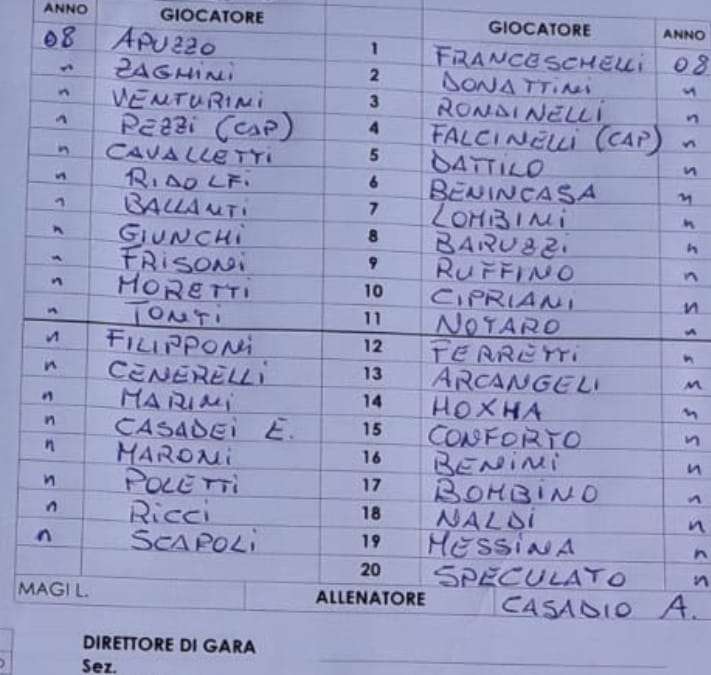 ANNO GIOCATORE GIOCATORE ANNO
08 APUZZO 1 FRANCESCHELLI 08
" ZAGHINI 2 DONATTINI "
" VENTURINI 3 RONDINELLI "
" PEZZI (CAP) 4 FALCINELLI (CAP) "
" CAVALLETTI 5 DATTILO "
" RIDOLFI 6 BENINCASA "
" BALLANTI 7 LOMBINI "
" GIUNCHI 8 BARUZZI "
" FRISONI 9 RUFFINO "
" MORETTI 10 CIPRIANI "
" TONTI 11 NOTARO "
" FILIPPONI 12 FERRETTI "
" CENERELLI 13 ARCANGELI "
" MARINI 14 HOXHA "
" CASADEI E. 15 CONFORTO "
" MARONI 16 BENINI "
" POLETTI 17 BOMBINO "
" RICCI 18 NALDI "
" SCAPOLI 19 MESSINA "
20 SPECULATO "
MAGI L. ALLENATORE CASADIO A.
DIRETTORE DI GARA
Sez.